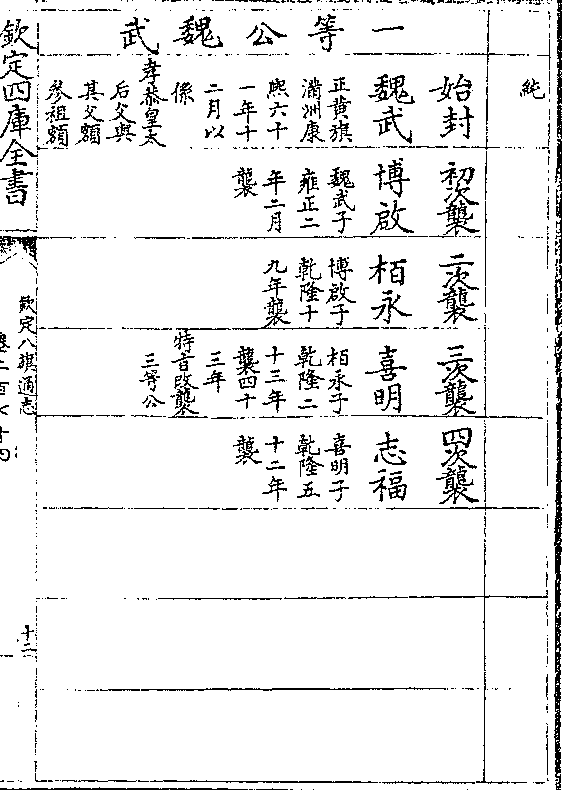 純
一等公魏武
始封
魏武
正黃旗
滿洲康
熙六十
一年十
二月以
係
孝恭皇太
后父與
其父額
參祖額
初次襲
博啟
魏武子
雍正二
年二月
襲
二次襲
栢永
博啟子
乾隆十
九年襲
三次襲
喜明
栢永子
乾隆二
十三年
襲四十
三年
特旨改襲
三等公
四次襲
志福
喜明子
乾隆五
十二年
襲
欽定四庫全書
欽定八旗通志
十二